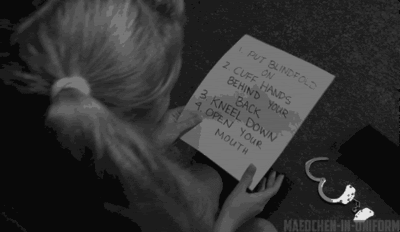 1. PUT BLINDFOLD
ON
2. CUFF HANDS
BEHIND YOUR
BACK
3. KNEEL DOWN
4. OPEN YOUR
MOUTH
MAEDCHEN-IN-UNIFORM